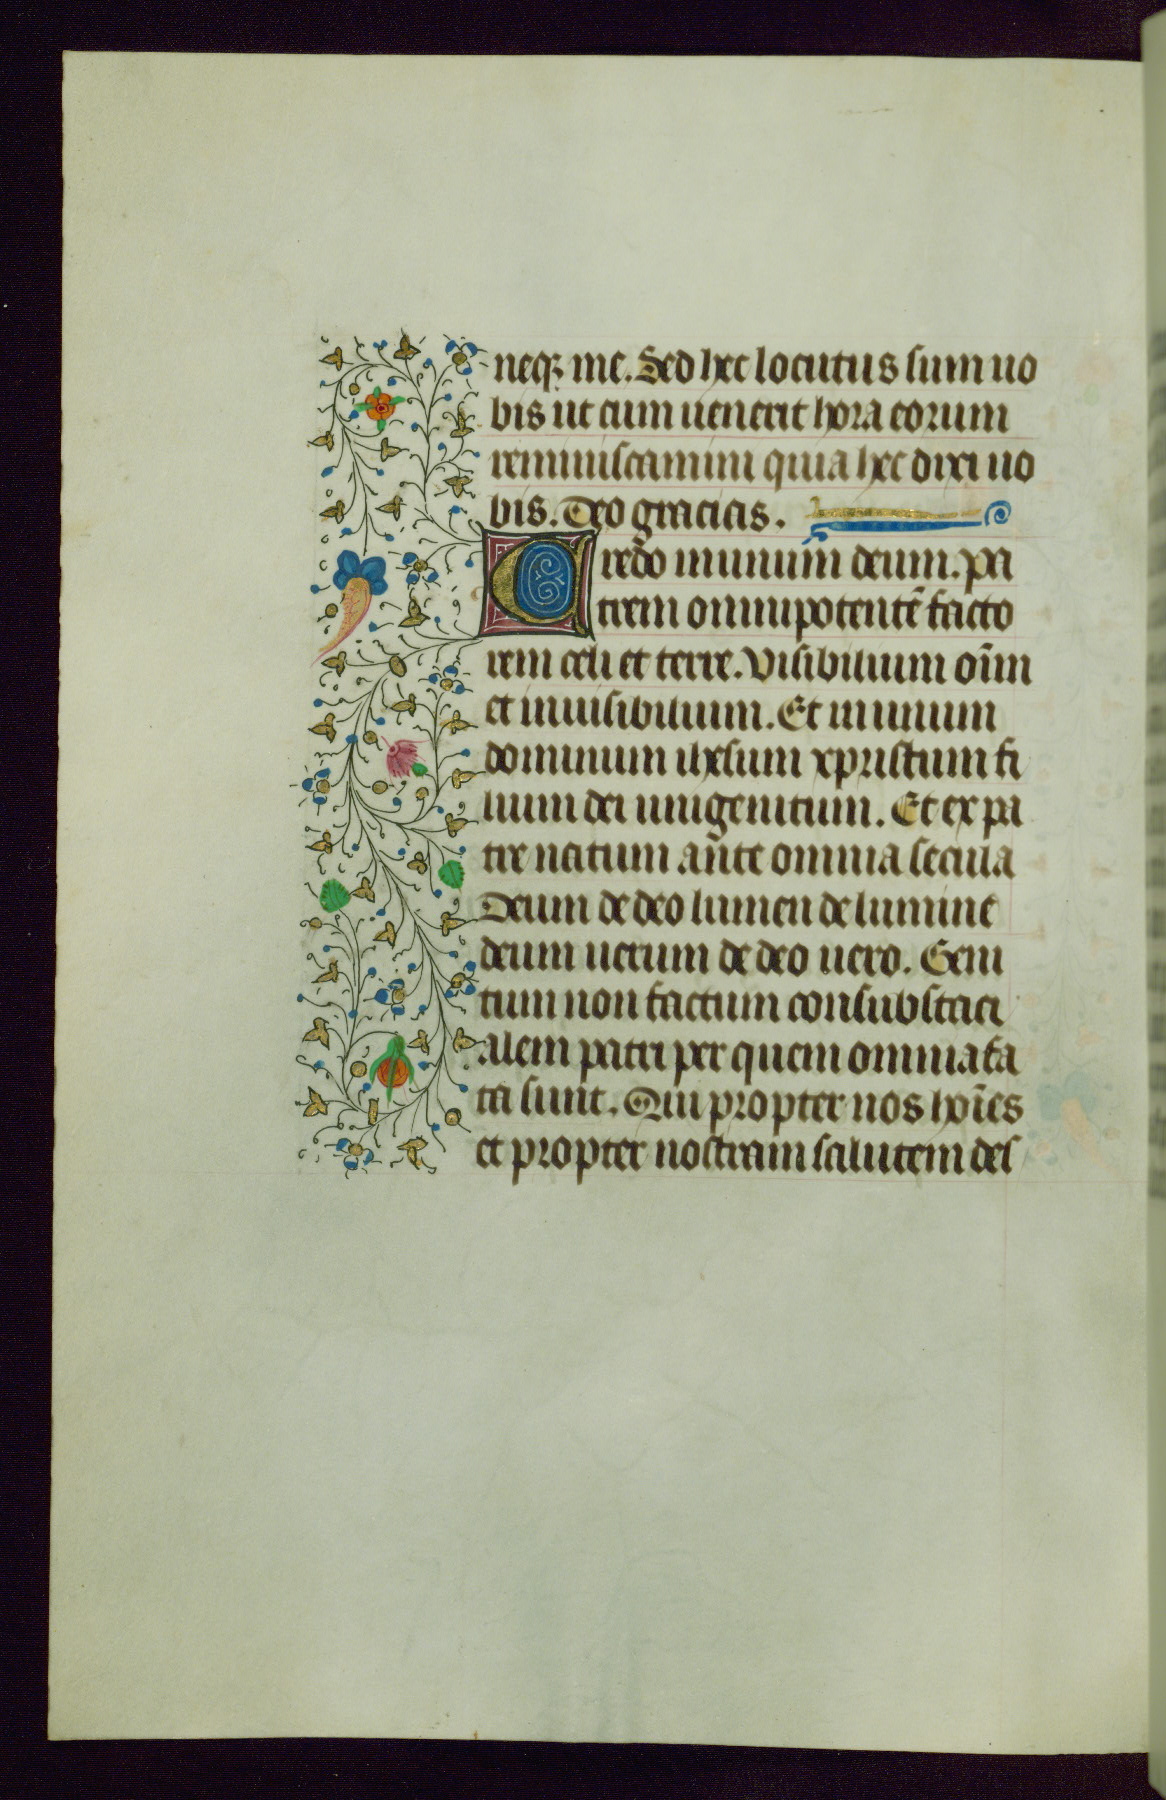 neqꝫ me. Sed hec locutus sum uo
bis ut cum uenerit hora eorum
reminiscamini quia hec dixi uo
bis. Deo gracias.
Credo in unum deum. pa
trem omnipotentē facto
rem celi et terre. Visibilium oīm
et inuisibilium. Et in unum
dominum ihesum xpristum fi
lium dei unigenitum. Et ex pa
tre natum ante omnia secula
Deum de deo lumen de lumine
deum uerum de deo uero. Geni
tum non factum consubstaci
alem patri per quem omnia fa
cta sunt. Qui propter nos hoīes
et propter nostram salutem des